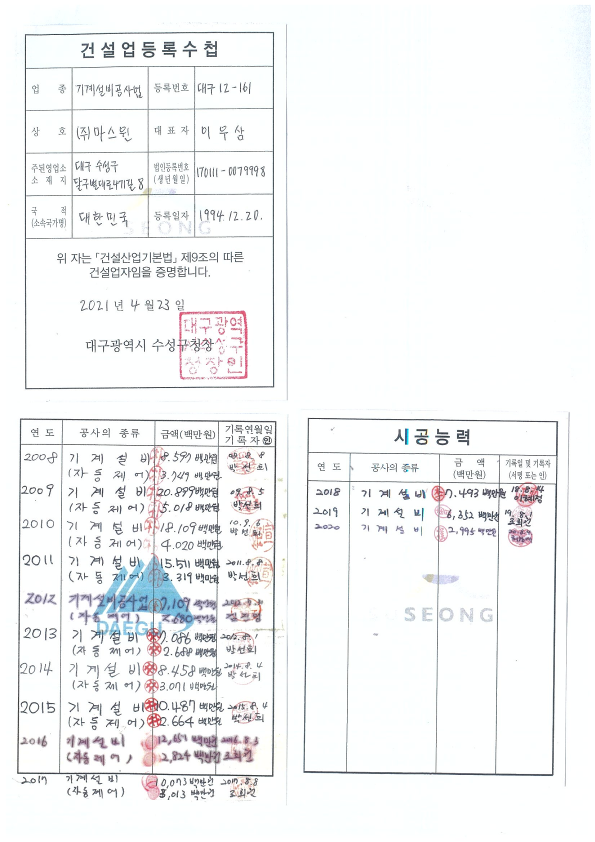 건설업등록수첩
업 종 기계설비공사업 등록번호 대구 12-161
상 호 (주)마스원 대 표 자 이 무 삼
주된영업소 소 재 지 대구 수성구 달구벌대로471길 8 법인등록번호 (생년월일) 170111-0079998
국 적 (소속국가명) 대한민국 등록일자 1994.12.20.
SEONG
위 자는 「건설산업기본법」 제9조의 따른
건설업자임을 증명합니다.
2021 년 4 월 23 일
대구광역시 수성구청장
대구광역
성구
청장인
연 도 공사의 종류 금액(백만원) 기록연월일 기 록 자 ㊞
2008 기 계 설 비 8.597 백만원
(자 동 제 어) 3.749 백만원 박선희
2009 기 계 설 비 20.899 백만원 09.8.5
(자 동 제 어) 15.018 백만원 박선희
2010 기 계 설 비 18.109 백만원 10.9.6
(자 동 제 어) 4.020 백만원 박선희
2011 기 계 설 비 15.511 백만원 2011.8.8
(자 동 제 어) 3.319 백만원 박선희
2012 기계설비공사업 7,109 백만원
(자 동 제 어) 2.680 백만원
DAEGU
2013 기 계 설 비 7.086 백만원
(자 동 제 어) 2.688 백만원 박선희
2014 기 계 설 비 8.458 백만원 2014.8.4
(자 동 제 어) 3.071 백만원 박선희
2015 기 계 설 비 10.487 백만원 2015.8.4
(자 동 제 어) 2.664 백만원 박선희
2016 기 계 설 비 12,657 백만원 2016.8.3
(자 동 제 어) 2,824 백만원 조희진
2017 기 계 설 비 10,073 백만원 2017.8.8
(자 동 제 어) 3,013 백만원 조희진
시공능력
연 도 공사의 종류 금 액 (백만원) 기록일 및 기록자 (서명 또는 인)
2018 기 계 설 비 7.493 백만원
2019 기 계 설 비 6,352 백만원 19.8.1 조희진
2020 기 계 설 비 2,995 백만원
SEONG